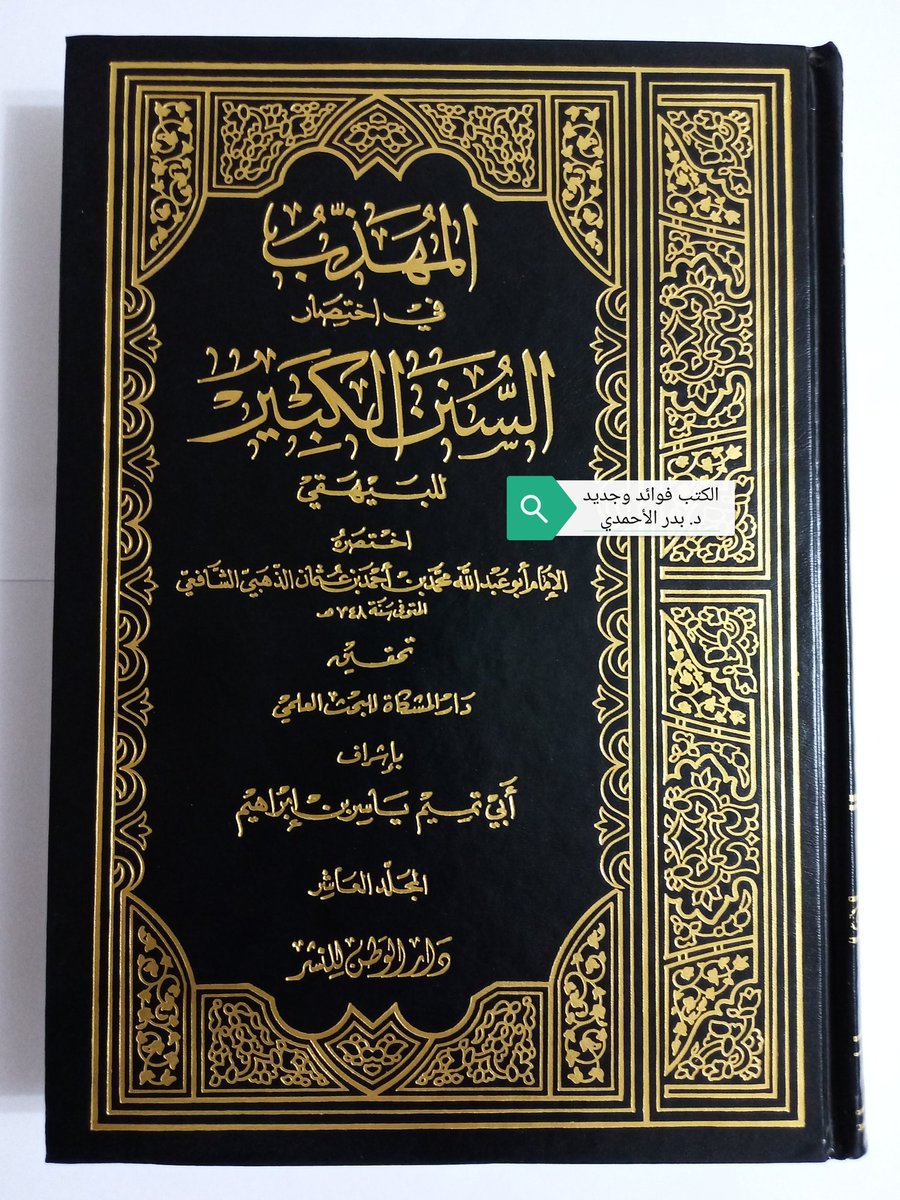 المهذّب
في اختصار
السُّنَن الكَبِير
للبيهقي
اختصره
الإمام أبو عبد الله محمد بن أحمد بن عثمان الذهبي الشافعي
المتوفى سنة ٧٤٨ هـ
تحقيق
دار المشكاة للبحث العلمي
بإشراف
أبي تميم ياسر بن إبراهيم
المجلد العاشر
دار الوطن للنشر
الكتب فوائد وجديد
د. بدر الأحمدي